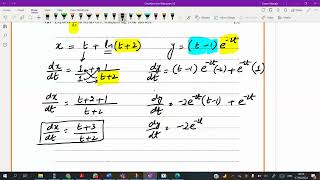 x = t + ln(t+2)   y = (t-1) e^{-2t}
dx/dt = 1/1 + 1/(t+2)   dy/dt = (t-1) e^{-2t}(-2) + e^{-2t}(1)
dx/dt = (t+2+1)/(t+2)   dy/dt = -2e^{-2t}(t-1) + e^{-2t}
dx/dt = (t+3)/(t+2)   dy/dt = -2e^{-2t}